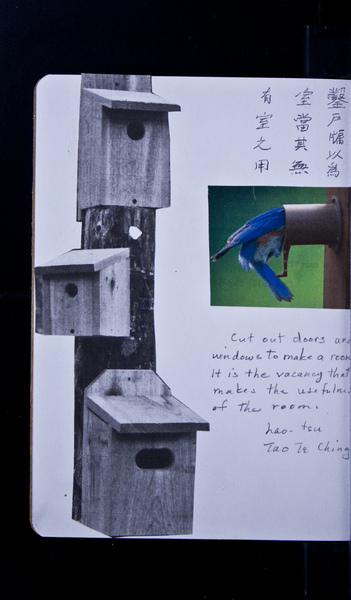 鑿戶牖以為
室當其無
有室之用
Cut out doors and
windows to make a room
It is the vacancy that
makes the usefulne
of the room.
Lao-tsu
Tao Te Ching